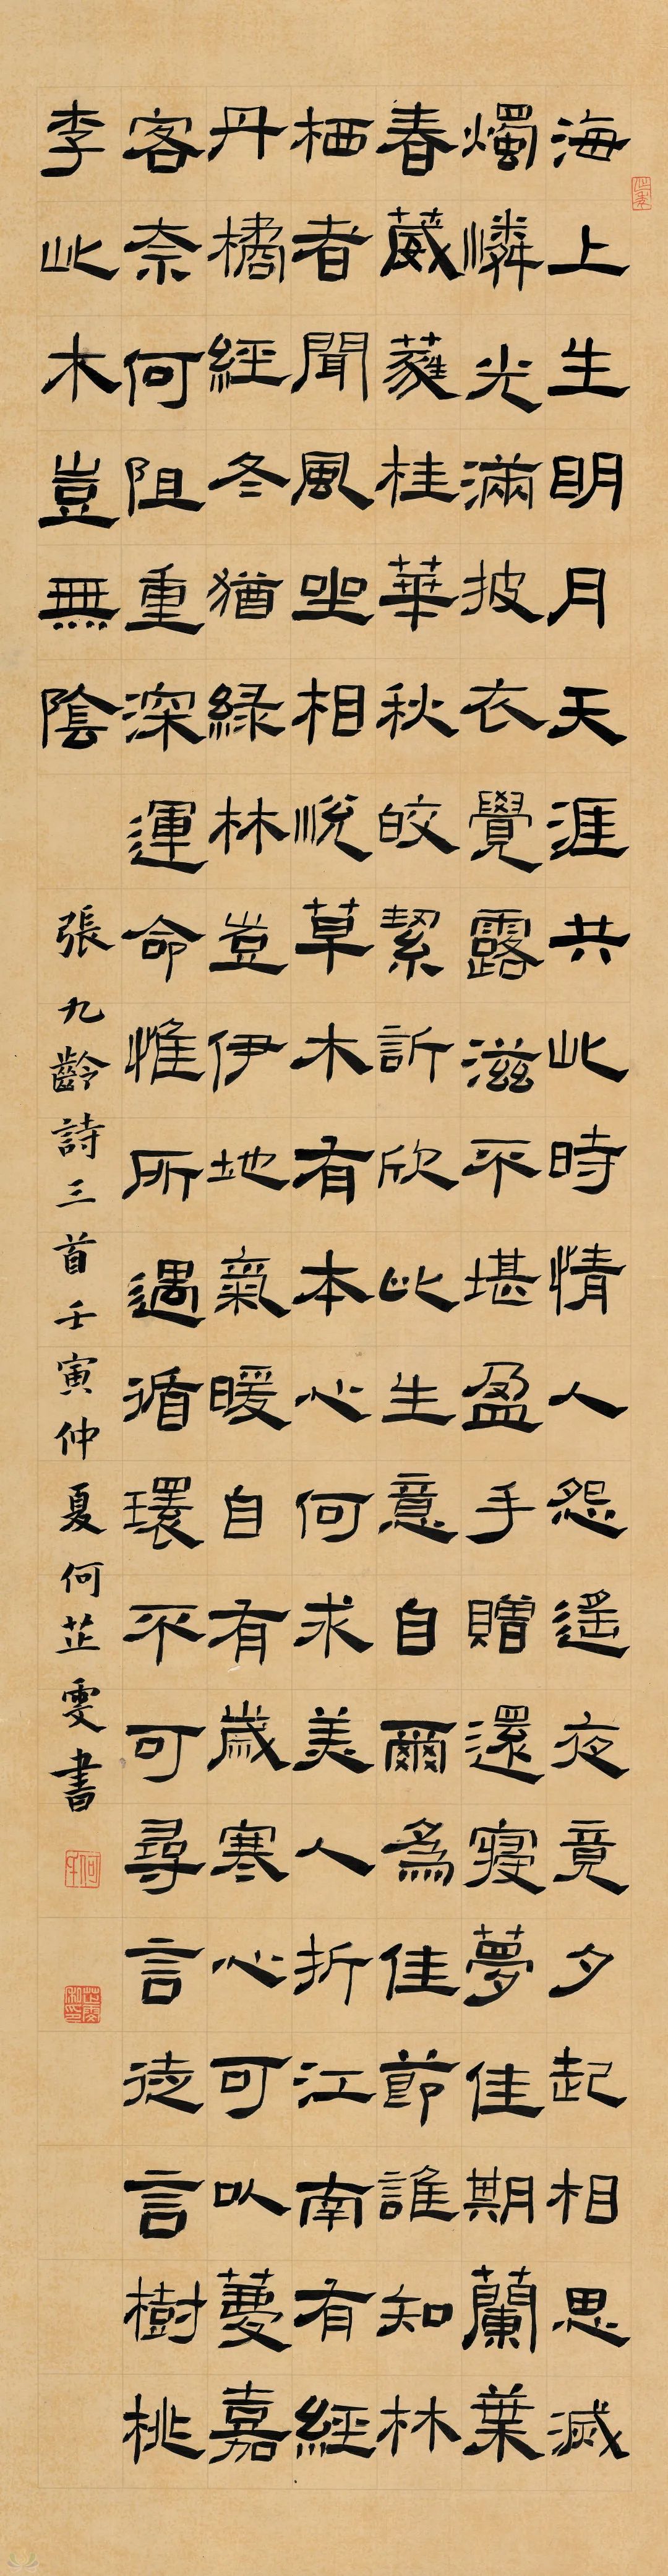 海上生眀月天涯共此時情人怨遙夜竟夕起相思滅
燭憐光滿披衣覺露滋不堪盈手贈還寢夢佳期蘭葉
春葳蕤桂華秋皎絜訢欣此生意自爾為佳節誰知林
栖者聞風坐相悅草木有本心何求美人折江南有經
丹橘經冬猶緑林豈伊地氣暖自有歲寒心可以薦嘉
客奈何阻重深運命惟所遇循環不可尋言徒言樹桃
李此木豈無陰
張九齡詩三首壬寅仲夏何芷雯書